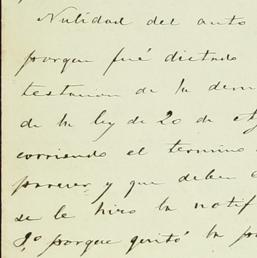 Nulidad del auto
porque fué dictado
testacion de la dem
de la ley de 20 de
corriendo el termino
parecer, y que deben
se le hizo la notif
porque quitó la